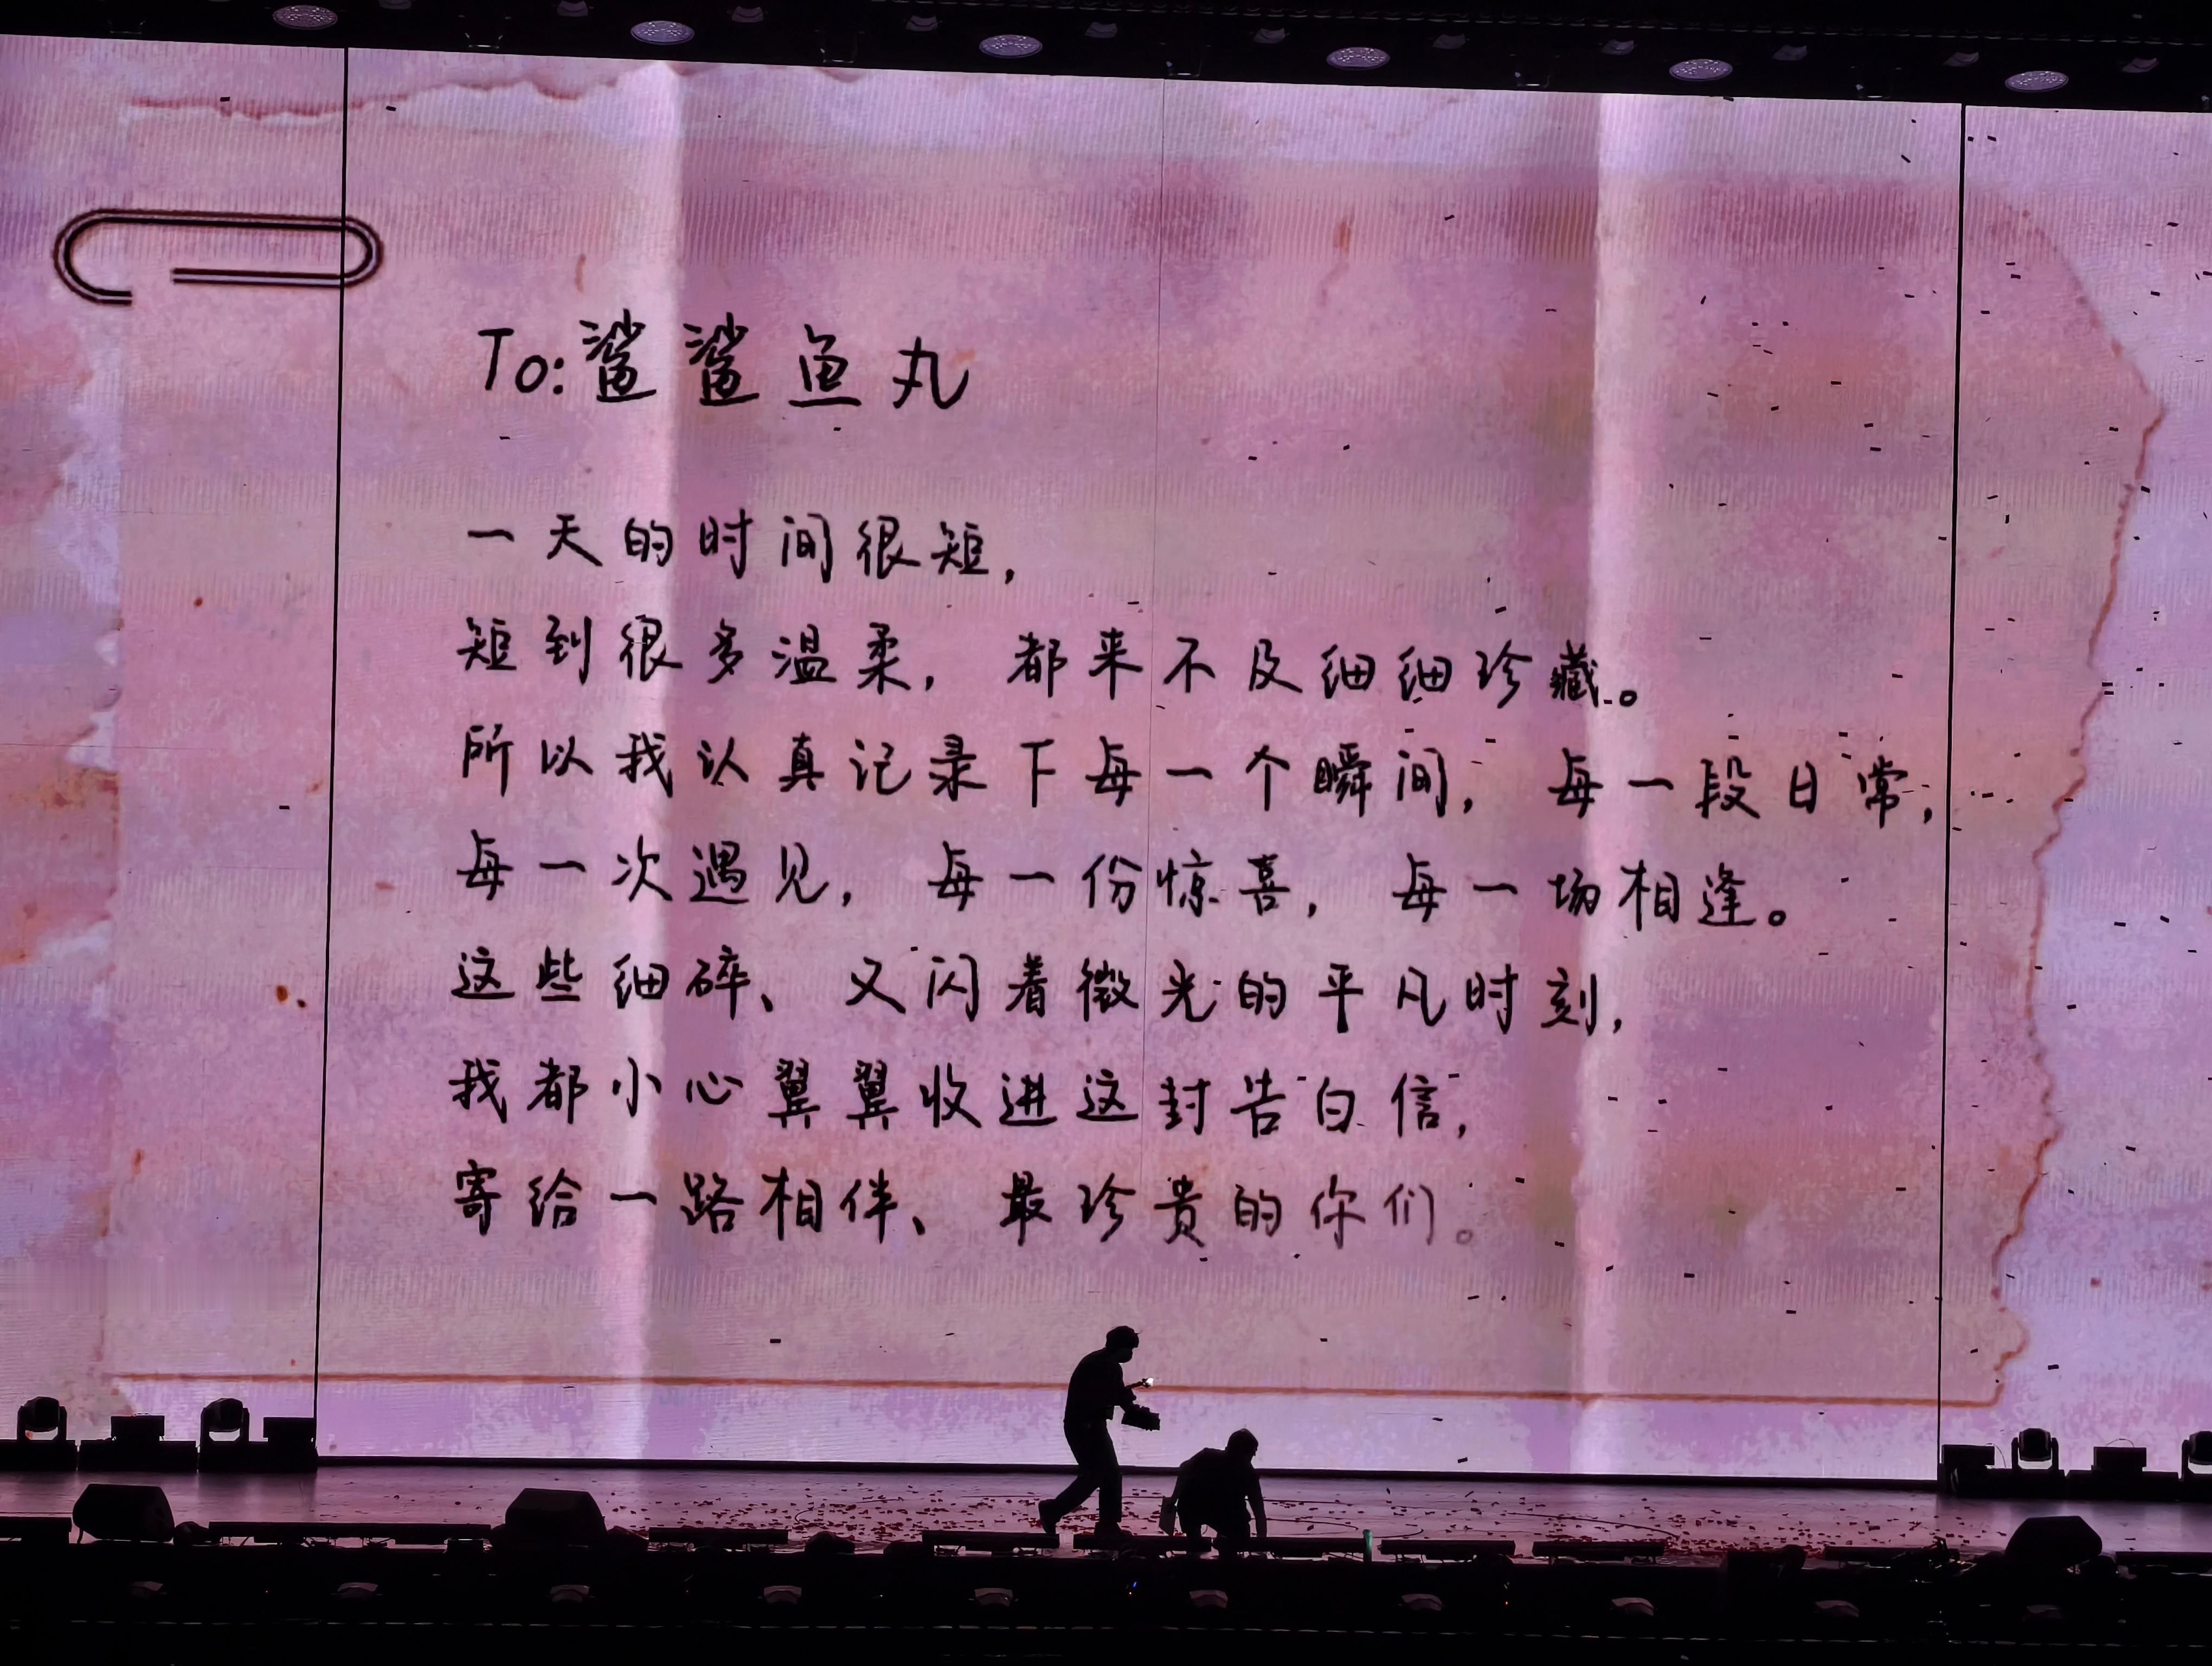 To:鲨鲨鱼丸
一天的时间很短，
短到很多温柔，都来不及细细珍藏。
所以我认真记录下每一个瞬间，每一段日常，
每一次遇见，每一份惊喜，每一场相逢。
这些细碎、又闪着微光的平凡时刻，
我都小心翼翼收进这封告白信，
寄给一路相伴、最珍贵的你们。